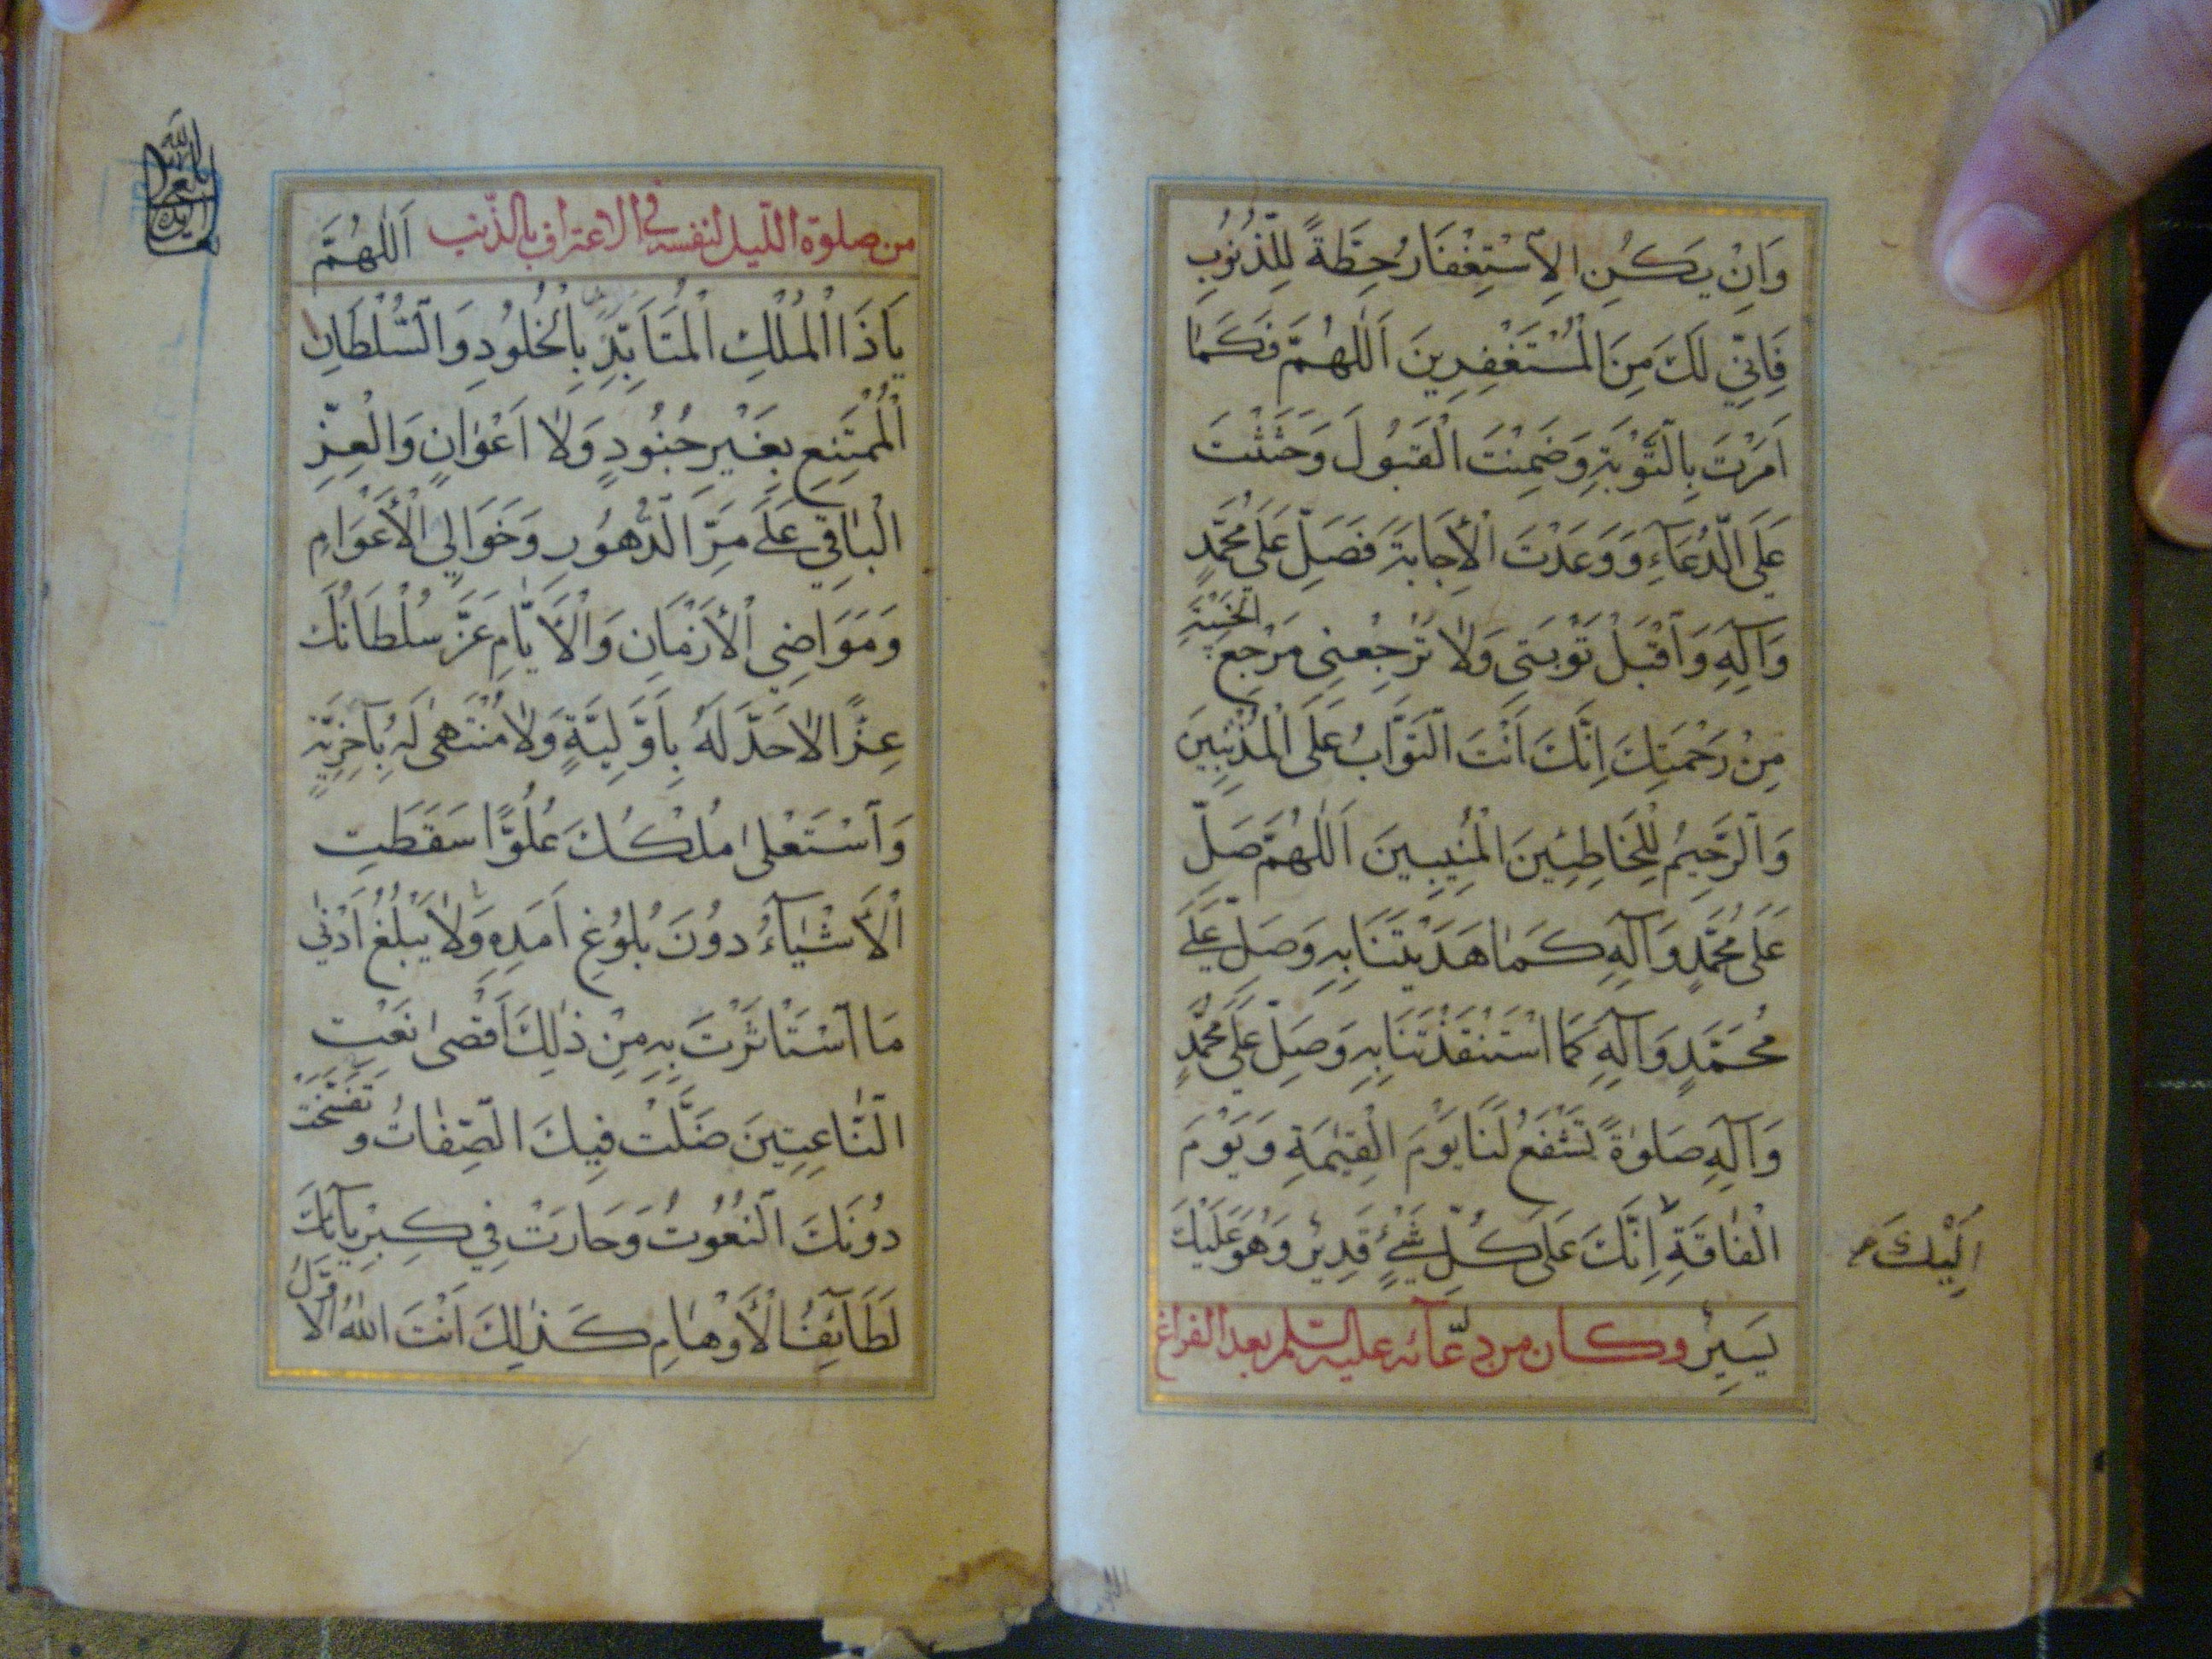 وَاِنْ يَكُنِ الِاسْتِغْفَارُ حِطَّةً لِلذُّنُوبِ
فَاِنّي لَكَ مِنَ الْمُسْتَغْفِرِينَ اَللّٰهُمَّ فَكَمَا
اَمَرْتَ بِالتَّوْبَةِ وَضَمِنْتَ الْقَبُولَ وَحَثَثْتَ
عَلَى الدُّعَآءِ وَوَعَدْتَ الْاِجَابَةَ فَصَلِّ عَلَى مُحَمَّدٍ
وَآلِهِ وَاقْبَلْ تَوْبَتِى وَلَا تَرْجِعْنِى مَرْجِعَ الْخَيْبَةِ
مِنْ رَحْمَتِكَ اِنَّكَ اَنْتَ التَّوَّابُ عَلَى الْمُذْنِبِينَ
وَالرَّحِيمُ لِلْخَاطِئِينَ الْمُنِيبِينَ اَللّٰهُمَّ صَلِّ
عَلَى مُحَمَّدٍ وَآلِهِ كَمَا هَدَيْتَنَا بِهِ وَصَلِّ عَلَى
مُحَمَّدٍ وَآلِهِ كَمَا اسْتَنْقَذْتَنَا بِهِ وَصَلِّ عَلَى مُحَمَّدٍ
وَآلِهِ صَلٰوةً تَشْفَعُ لَنَا يَوْمَ الْقِيٰمَةِ وَيَوْمَ
الْفَاقَةِ اِنَّكَ عَلَى كُلِّ شَيْءٍ قَدِيرٌ وَهُوَ عَلَيْكَ
اِلَيْكَ
يَسِيرٌ وكان من دعآئه عليه السّلم بعد الفراغ
من صلوة اللّيل لنفسه فى الاعتراف بالذّنب اَللّٰهُمَّ
يَا ذَا الْمُلْكِ الْمُتَاَبِّدِ بِالْخُلُودِ وَالسُّلْطَانِ
الْمُمْتَنِعِ بِغَيْرِ جُنُودٍ وَلَا اَعْوَانٍ وَالْعِزِّ
الْبَاقِي عَلَى مَرِّ الدُّهُورِ وَخَوَالِي الْأَعْوَامِ
وَمَوَاضِي الْأَزْمَانِ وَالْأَيَّامِ عَزَّ سُلْطَانُكَ
عِزًّا لَا حَدَّ لَهُ بِاَوَّلِيَّةٍ وَلَا مُنْتَهٰى لَهُ بِآخِرِيَّةٍ
وَاسْتَعْلٰى مُلْكُكَ عُلُوًّا سَقَطَتِ
الْأَشْيَآءُ دُونَ بُلُوغِ اَمَدِهِ وَلَا يَبْلُغُ اَدْنٰى
مَا اسْتَاْثَرْتَ بِهِ مِنْ ذٰلِكَ اَقْصٰى نَعْتِ
النَّاعِتِينَ ضَلَّتْ فِيكَ الصِّفَاتُ وَتَفَسَّخَتْ
دُونَكَ النُّعُوتُ وَحَارَتْ فِي كِبْرِيَآئِكَ
لَطَآئِفُ الْأَوْهَامِ كَذٰلِكَ اَنْتَ اللهُ الْاَوَّلُ